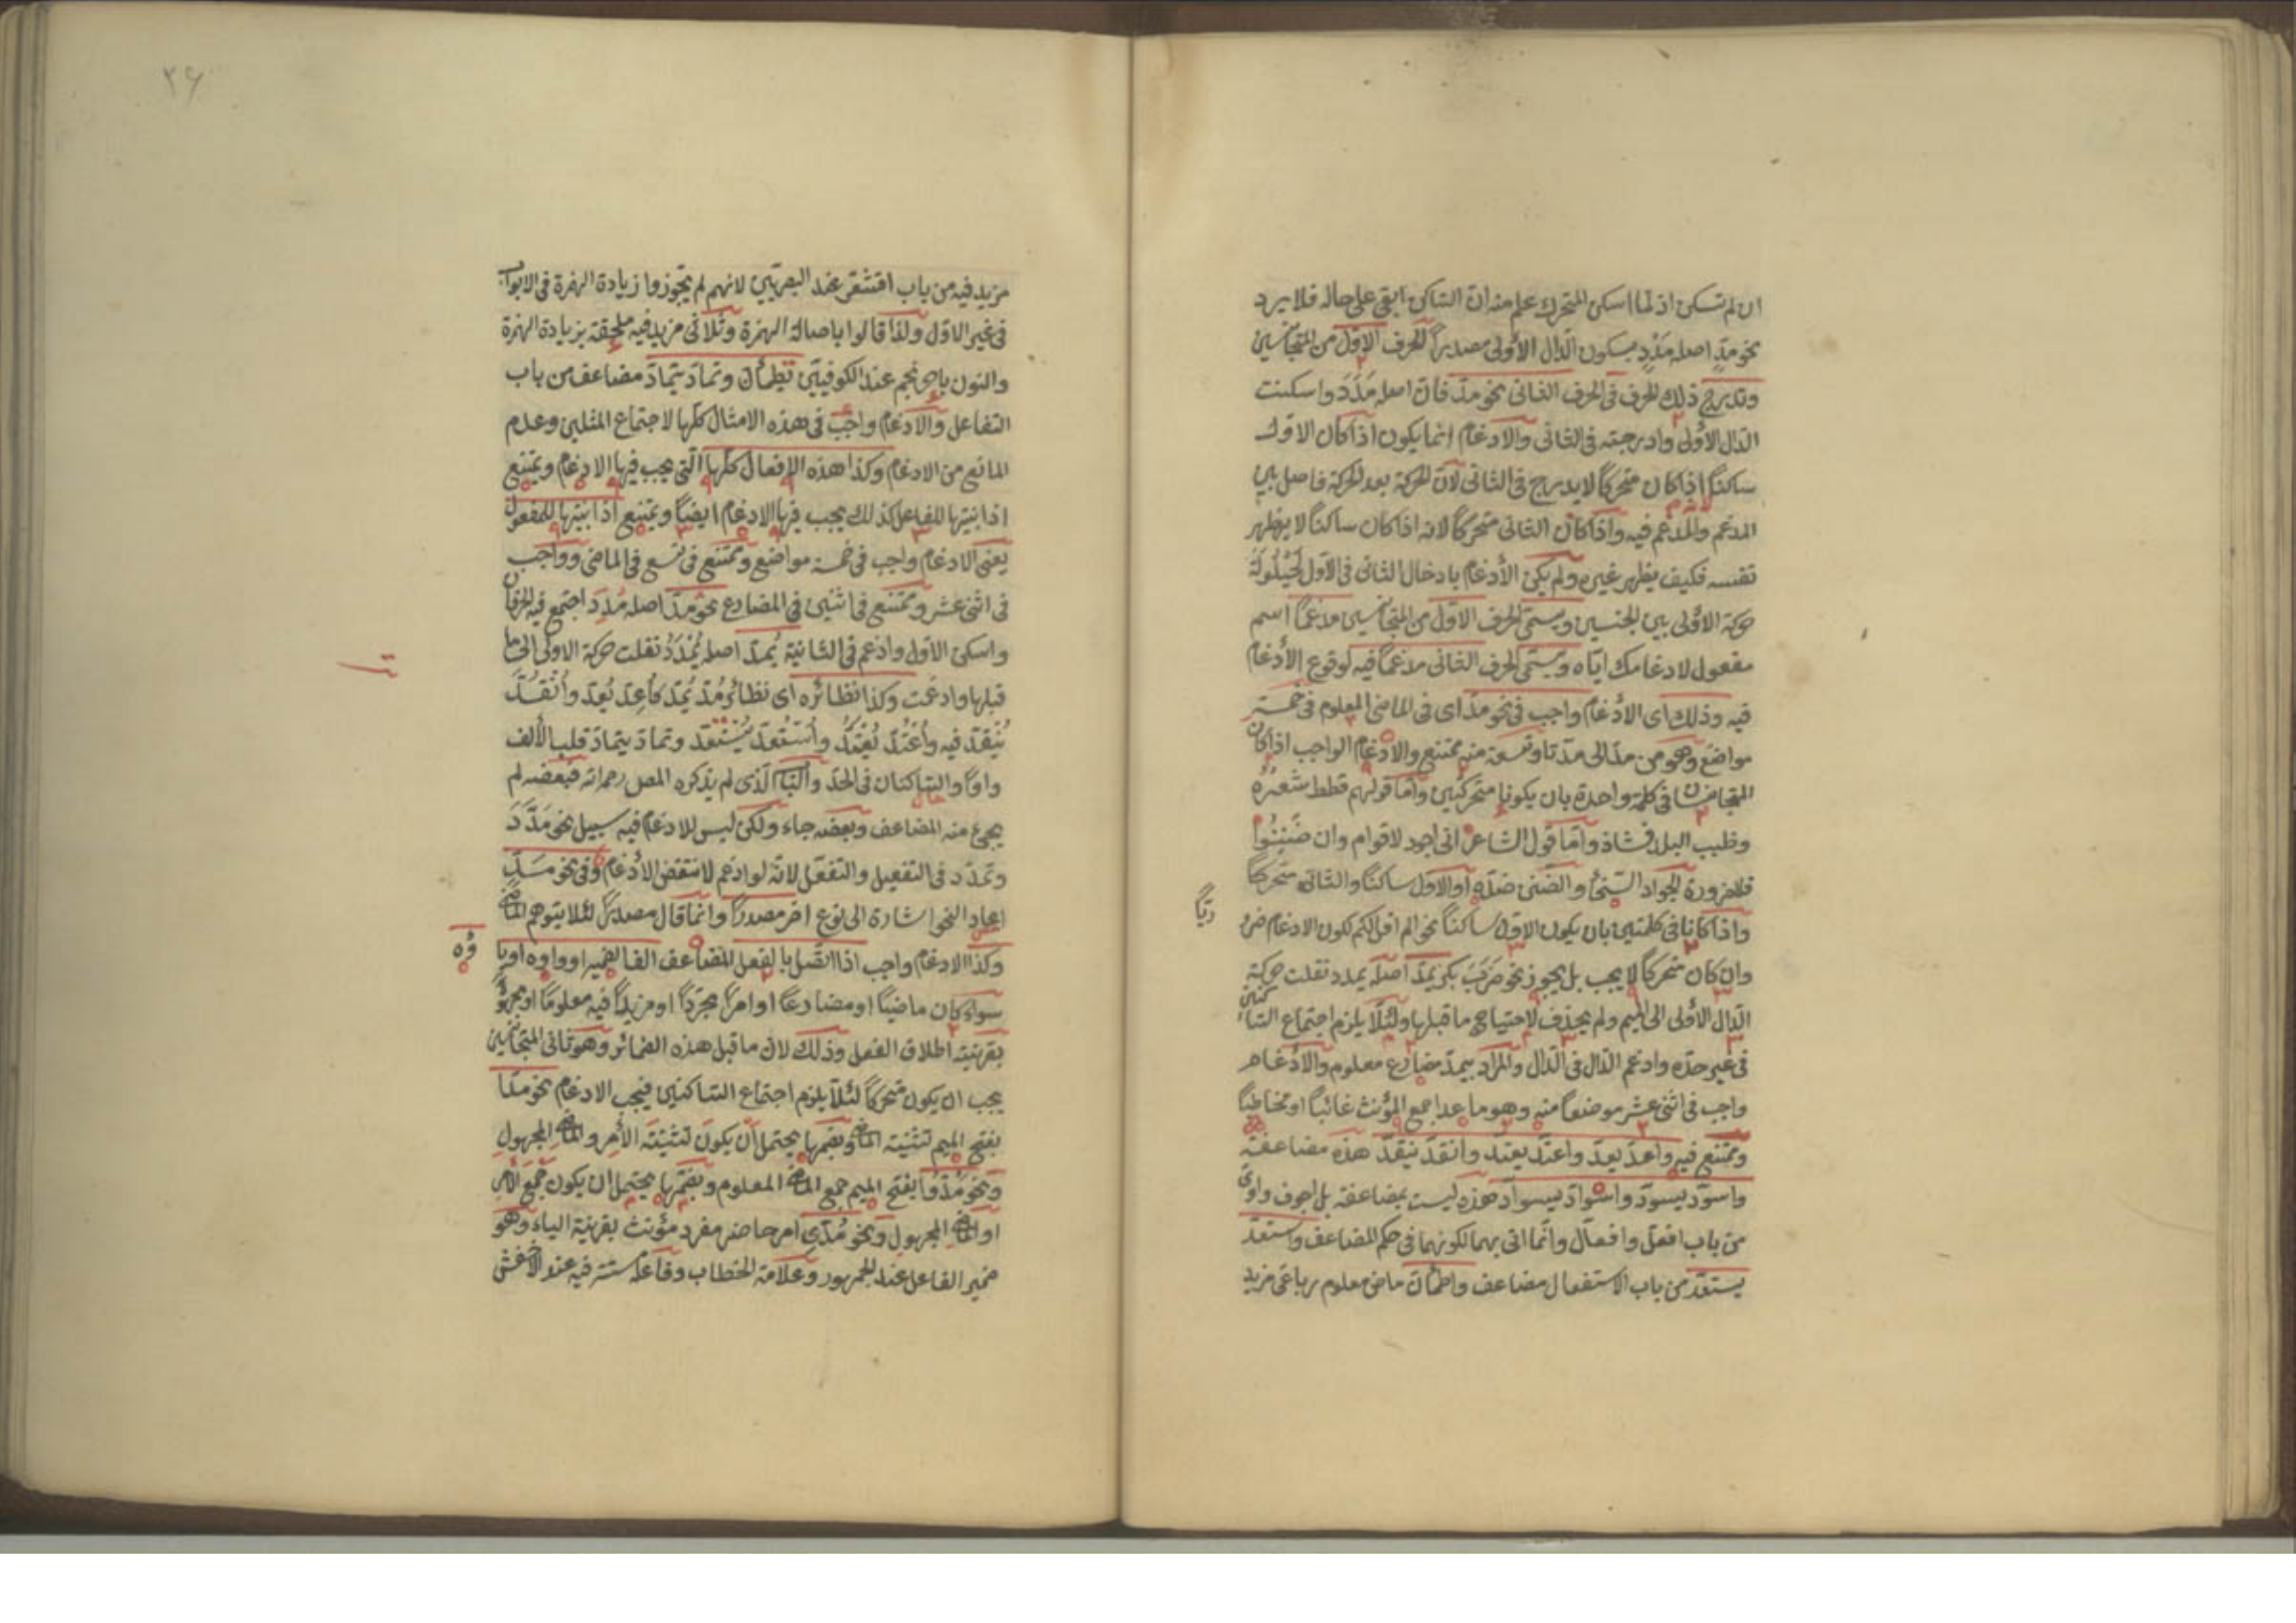 ان لم تسكن اذ لما اسكن المتحرك علم منه ان الساكن ابقى على حاله فلا يرد
نحو مدٍّ اصله مَدْدٍ بسكون الدال الاولى مصدراً الحرف الاول من المتجانسين
وتدرج ذلك الحرف فى الحرف الثانى نحو مدّ فان اصله مَدَدَ واسكنت
الدال الاولى وادرجته فى الثانى والادغام انما يكون اذا كان الاول
ساكنًا اذا كان متحركًا لا يدرج فى الثانى لان الحركة بعد الحركة فاصل بين
المدغم والمدغم فيه واذا كان الثانى متحركًا لانه اذا كان ساكنًا لا يظهر
نفسه فكيف يظهر غيره ولم يكن الادغام بادخال الثانى فى الاول لحيلولة
حركة الاولى بين الجنسين ويسمّى الحرف الاول من المتجانسين مدغمًا اسم
مفعول لادغامك ايّاه ويسمّى الحرف الثانى مدغمًا فيه لوقوع الأدغام
فيه وذلك اى الادغام واجب فى نحو مدّ اى فى الماضى المعلوم فى خمسة
مواضع وهو من مدّ الى مدّتا وتسعة منه ممتنع والادغام الواجب اذا كان
المتجانسان فى كلمة واحدة بان يكونا متحركين وامّا قولهم قطط شَعْرُه
وظبب البلد فشاذ وامّا قول الشاعر انى اجود لاقوام وان ضَنِنُوا
فلضرورة الجواد السّخى والضّنى ضدّه او الاول ساكنًا والثانى متحركًا
واذا كانا فى كلمتين بان يكون الاول ساكنًا نحو الم اقل لكم لكون الادغام ضرو
ريًّا
وان كان متحركًا لا يجب بل يجوز نحو ضَرَبَ بكر يمدّ اصله يمدد نقلت حركة
الدال الاولى الى الميم ولم يحذف لاحتياج ما قبلها ولئلّا يلزم اجتماع الساكنين
فى غير حدّه وادغم الدال فى الدال والمراد بيمدّ مضارع معلوم والادغام
واجب فى اثنى عشر موضعًا منه وهو ما عدا جمع المؤنث غائبًا او مخاطبًا
وممتنع فيه واعدّ يعدّ واعتدّ يعتدّ وانقدّ ينقدّ هذه مضاعفة
واسودّ يسودّ واسوادّ يسوادّ هذه ليست بمضاعفة بل اجوف واوى
من باب افعلّ وافعالّ وانّما اتى بهما لكونهما فى حكم المضاعف واستعدّ
يستعدّ من باب الاستفعال مضاعف واطمأنّ ماض معلوم رباعى مزيد
٣۶
مزيد فيه من باب اقشعرّ عند البصريّين لانهم لم يجوزوا زيادة الهمزة فى الابواب
فى غير الاول ولذا قالوا باصالة الهمزة وثلاثى مزيد فيه ملحقة بزيادة الهمزة
والنون باحرنجم عند الكوفيّين تطمأنّ وتمادّ يتمادّ مضاعف من باب
التفاعل والادغام واجب فى هذه الامثال كلّها لاجتماع المثلين وعدم
المانع من الادغام وكذا هذه الافعال كلّها الّتى يجب فيها الادغام ويمتنع
اذا بنيتها للفاعل كذلك يجب فيها الادغام ايضًا ويمتنع اذا بنيتها للمفعول
يعنى الادغام واجب فى خمسة مواضع وممتنع فى تسع فى الماضى وواجب
فى اثنى عشر وممتنع فى اثنين فى المضارع نحو مُدّ اصله مُدِدَ اجتمع فيه الحرفان
واسكن الاول وادغم فى الثانية يُمدّ اصله يُمْدَدُ نقلت حركة الاولى الى ما
قبلها وادغمت وكذا نظائره اى نظائر مُدّ يُمدّ كأُعِدّ يُعدّ وأُنْقُدَّ
يُنْقدّ فيه وأُعتُدّ يُعتدّ وأُستُعدّ يُستعدّ وتمادّ يتمادّ قلب الألف
واوًا والساكنان فى الحدّ والباب الّذى لم يذكره المص رحمه الله فبعضه لم
يجئ منه المضاعف وبعضه جاء ولكن ليس للادغام فيه سبيل نحو مَدَّدَ
وتمدّد فى التفعيل والتفعّل لانّه لو ادغم لانتقض الأدغام وفى نحو مدّ
اعاد النحو اشارة الى نوع اخر مصدرًا وانّما قال مصدرًا لئلا يتوهم الماضى
وكذا الادغام واجب اذا اتّصل بالفعل المضاعف الف الضمير او واوه او يا
ؤه
سواء كان ماضيًا او مضارعًا او امرًا مجردًا او مزيدًا فيه معلومًا او مجهولًا
بقرينة اطلاق الفعل وذلك لان ما قبل هذه الضمائر وهو ثانى المتجانسين
يجب ان يكون متحركًا لئلّا يلزم اجتماع الساكنين فيجب الادغام نحو مدّا
بفتح الميم تثنية الماضى وبضمها يحتمل أن يكون تثنية الأمر والماضى المجهول
ونحو مدّوا بفتح الميم جمع الماضى المعلوم وبضمّها يحتمل ان يكون جمع الأمر
او الماضى المجهول ونحو مُدّى امر حاضر مفرد مؤنث بقرينة الياء وهو
ضمير الفاعل عند الجمهور وعلامة الخطاب وفاعله مستتر فيه عند الاخفش